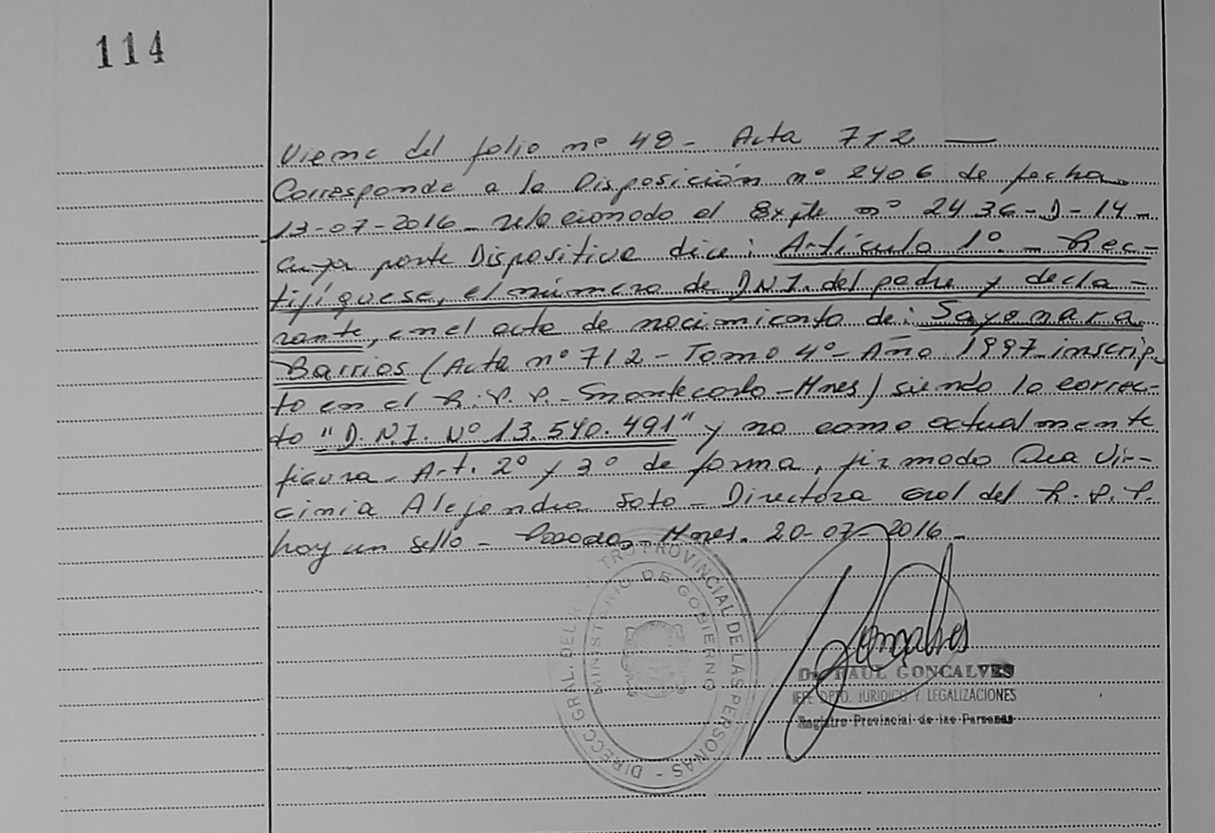 114
Viene del folio nº 48 - Acta 712 —
Corresponde a la Disposición nº 2406 de fecha
13-07-2016 - relacionado al Expte nº 2436-D-14-
cuya parte Dispositiva dice: Artículo 1º. - Rec-
tifíquese, el número de D.N.I. del padre y decla-
rante, en el acta de nacimiento de: Sayonara
Barrios (Acta nº 712 - Tomo 4º - Año 1997 - inscrip-
to en el R.P.P. - Montecarlo - Mnes) siendo lo correc-
to "D.N.I. Nº 13.540.491" y no como actualmente
figura - Art. 2º y 3º de forma, firmado Dra Vir-
ginia Alejandra Soto - Directora Gral del R.P.P.
hay un sello - Posadas, Mnes. 20-07-2016 -
DIRECC. GRAL. DEL TRO PROVINCIAL DE LAS PERSONAS -
MINISTERIO DE GOBIERNO
Goncalves
Dr. RAUL GONCALVES
JEFE DPTO. JURIDICO Y LEGALIZACIONES
Registro Provincial de las Personas